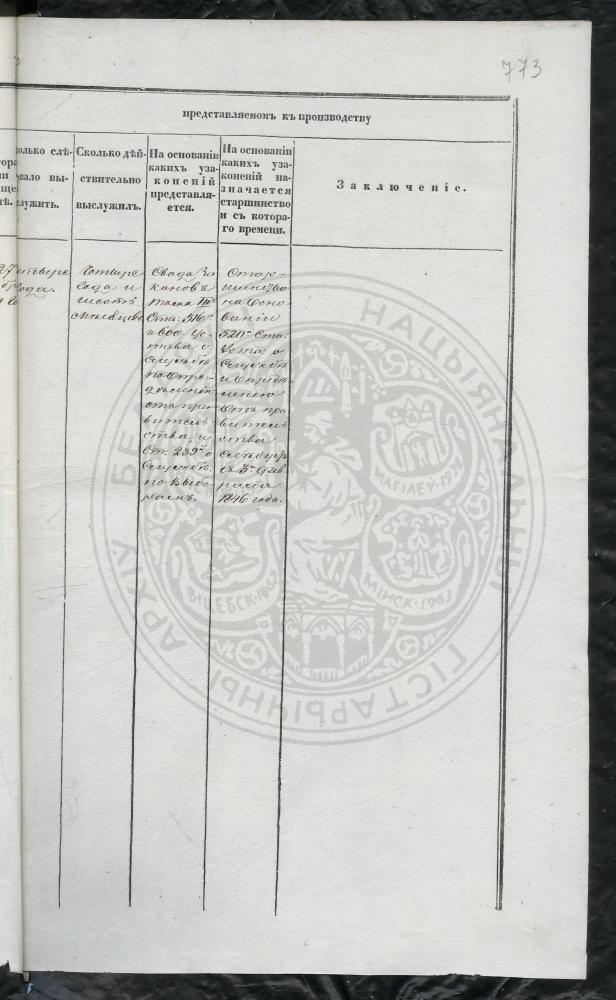 773
представляемомъ къ производству
колько слѣ-
вало вы-
служить.
Сколько дѣй-
ствительно
выслужилъ.
На основаніи
какихъ уза-
коненій
представля-
ется.
На основаніи
какихъ уза-
коненій на-
значается
старшинство
и съ котора-
го времени.
Заключеніе.
года.
Четыре
года и
шесть
мѣсяцевъ
Свода За
коновъ
тома III
Ста: 516
и 600. Ус-
тава о
Службѣ
по Опре-
дѣленію
отъ пра
витель-
ства, и
Ст: 239 о
Службѣ
по выбо-
рамъ.
Стар-
шинство
на Осно-
ваніи
520 Ста:
Устав. о
Службѣ
и Опредѣ
ленію
Отъ пра
витель
ства
слѣдуе
съ 3 Фев
раля
1846 года.
НАЦЫЯНАЛЬНЫ
ГІСТАРЫЧНЫ АРХІЎ
МАГІЛЁЎ
ВІЦЕБСК
МІНСК